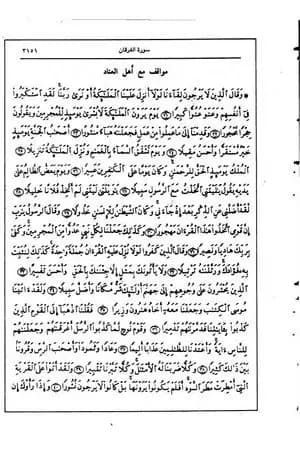 سورة الفرقان ٣١٥١
مواقف مع أهل العناد
* وَقَالَ الَّذِينَ لَا يَرْجُونَ لِقَآءَنَا لَوْلَآ أُنزِلَ عَلَيْنَا الْمَلَٰٓئِكَةُ أَوْ نَرَىٰ رَبَّنَا لَقَدِ اسْتَكْبَرُوا
فِىٓ أَنفُسِهِمْ وَعَتَوْ عُتُوًّا كَبِيرًا ﴿٢١﴾ يَوْمَ يَرَوْنَ الْمَلَٰٓئِكَةَ لَا بُشْرَىٰ يَوْمَئِذٍ لِّلْمُجْرِمِينَ وَيَقُولُونَ
حِجْرًا مَّحْجُورًا ﴿٢٢﴾ وَقَدِمْنَآ إِلَىٰ مَا عَمِلُوا مِنْ عَمَلٍ فَجَعَلْنَٰهُ هَبَآءً مَّنثُورًا ﴿٢٣﴾ أَصْحَٰبُ الْجَنَّةِ يَوْمَئِذٍ
خَيْرٌ مُّسْتَقَرًّا وَأَحْسَنُ مَقِيلًا ﴿٢٤﴾ وَيَوْمَ تَشَقَّقُ السَّمَآءُ بِالْغَمَٰمِ وَنُزِّلَ الْمَلَٰٓئِكَةُ تَنزِيلًا ﴿٢٥﴾
الْمُلْكُ يَوْمَئِذٍ الْحَقُّ لِلرَّحْمَٰنِ وَكَانَ يَوْمًا عَلَى الْكَٰفِرِينَ عَسِيرًا ﴿٢٦﴾ وَيَوْمَ يَعَضُّ الظَّالِمُ عَلَىٰ
يَدَيْهِ يَقُولُ يَٰلَيْتَنِى اتَّخَذْتُ مَعَ الرَّسُولِ سَبِيلًا ﴿٢٧﴾ يَٰوَيْلَتَىٰ لَيْتَنِى لَمْ أَتَّخِذْ فُلَانًا خَلِيلًا ﴿٢٨﴾
لَّقَدْ أَضَلَّنِى عَنِ الذِّكْرِ بَعْدَ إِذْ جَآءَنِى وَكَانَ الشَّيْطَٰنُ لِلْإِنسَٰنِ خَذُولًا ﴿٢٩﴾ وَقَالَ الرَّسُولُ يَٰرَبِّ
إِنَّ قَوْمِى اتَّخَذُوا هَٰذَا الْقُرْءَانَ مَهْجُورًا ﴿٣٠﴾ وَكَذَٰلِكَ جَعَلْنَا لِكُلِّ نَبِىٍّ عَدُوًّا مِّنَ الْمُجْرِمِينَ وَكَفَىٰ
بِرَبِّكَ هَادِيًا وَنَصِيرًا ﴿٣١﴾ وَقَالَ الَّذِينَ كَفَرُوا لَوْلَا نُزِّلَ عَلَيْهِ الْقُرْءَانُ جُمْلَةً وَٰحِدَةً كَذَٰلِكَ لِنُثَبِّتَ
بِهِ فُؤَادَكَ وَرَتَّلْنَٰهُ تَرْتِيلًا ﴿٣٢﴾ وَلَا يَأْتُونَكَ بِمَثَلٍ إِلَّا جِئْنَٰكَ بِالْحَقِّ وَأَحْسَنَ تَفْسِيرًا ﴿٣٣﴾
الَّذِينَ يُحْشَرُونَ عَلَىٰ وُجُوهِهِمْ إِلَىٰ جَهَنَّمَ أُولَٰٓئِكَ شَرٌّ مَّكَانًا وَأَضَلُّ سَبِيلًا ﴿٣٤﴾ وَلَقَدْ ءَاتَيْنَا
مُوسَى الْكِتَٰبَ وَجَعَلْنَا مَعَهُ أَخَاهُ هَٰرُونَ وَزِيرًا ﴿٣٥﴾ فَقُلْنَا اذْهَبَآ إِلَى الْقَوْمِ الَّذِينَ
كَذَّبُوا بِـَٔايَٰتِنَا فَدَمَّرْنَٰهُمْ تَدْمِيرًا ﴿٣٦﴾ وَقَوْمَ نُوحٍ لَّمَّا كَذَّبُوا الرُّسُلَ أَغْرَقْنَٰهُمْ وَجَعَلْنَٰهُمْ
لِلنَّاسِ ءَايَةً وَأَعْتَدْنَا لِلظَّٰلِمِينَ عَذَابًا أَلِيمًا ﴿٣٧﴾ وَعَادًا وَثَمُودَا وَأَصْحَٰبَ الرَّسِّ وَقُرُونًا
بَيْنَ ذَٰلِكَ كَثِيرًا ﴿٣٨﴾ وَكُلًّا ضَرَبْنَا لَهُ الْأَمْثَٰلَ وَكُلًّا تَبَّرْنَا تَتْبِيرًا ﴿٣٩﴾ وَلَقَدْ أَتَوْا عَلَى الْقَرْيَةِ
الَّتِىٓ أُمْطِرَتْ مَطَرَ السَّوْءِ أَفَلَمْ يَكُونُوا يَرَوْنَهَا بَلْ كَانُوا لَا يَرْجُونَ نُشُورًا ﴿٤٠﴾ وَإِذَا رَأَوْكَ